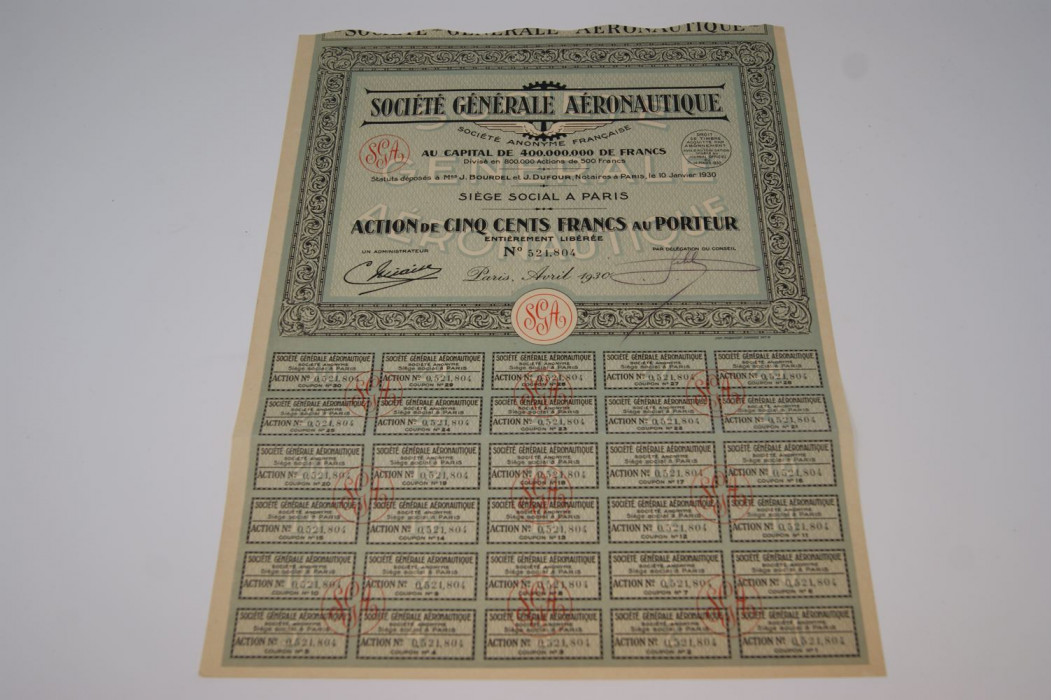 SOCIÉTÉ GÉNÉRALE AÉRONAUTIQUE
SOCIÉTÉ GÉNÉRALE AÉRONAUTIQUE
SOCIÉTÉ ANONYME FRANÇAISE
SGA
AU CAPITAL DE 400.000.000 DE FRANCS
Divisé en 800.000 Actions de 500 Francs
Statuts déposés à Mes J. BOURDEL et J. DUFOUR, Notaires à PARIS, le 10 Janvier 1930
SIÈGE SOCIAL A PARIS
ACTION DE CINQ CENTS FRANCS AU PORTEUR
ENTIÈREMENT LIBÉRÉE
No 521.804
UN ADMINISTRATEUR
PAR DÉLÉGATION DU CONSEIL
Paris, Avril 1930
SGA
SOCIÉTÉ GÉNÉRALE AÉRONAUTIQUE SOCIÉTÉ GÉNÉRALE AÉRONAUTIQUE SOCIÉTÉ GÉNÉRALE AÉRONAUTIQUE SOCIÉTÉ GÉNÉRALE AÉRONAUTIQUE SOCIÉTÉ GÉNÉRALE AÉRONAUTIQUE
SOCIÉTÉ ANONYME SOCIÉTÉ ANONYME SOCIÉTÉ ANONYME SOCIÉTÉ ANONYME SOCIÉTÉ ANONYME
Siège social à PARIS Siège social à PARIS Siège social à PARIS Siège social à PARIS Siège social à PARIS
ACTION No 0,521,804 ACTION No 0,521,804 ACTION No 0,521,804 ACTION No 0,521,804 ACTION No 0,521,804
COUPON No 30 COUPON No 29 COUPON No 28 COUPON No 27 COUPON No 26
SOCIÉTÉ GÉNÉRALE AÉRONAUTIQUE SOCIÉTÉ GÉNÉRALE AÉRONAUTIQUE SOCIÉTÉ GÉNÉRALE AÉRONAUTIQUE SOCIÉTÉ GÉNÉRALE AÉRONAUTIQUE SOCIÉTÉ GÉNÉRALE AÉRONAUTIQUE
SOCIÉTÉ ANONYME SOCIÉTÉ ANONYME SOCIÉTÉ ANONYME SOCIÉTÉ ANONYME SOCIÉTÉ ANONYME
Siège social à PARIS Siège social à PARIS Siège social à PARIS Siège social à PARIS Siège social à PARIS
ACTION No 0,521,804 ACTION No 0,521,804 ACTION No 0,521,804 ACTION No 0,521,804 ACTION No 0,521,804
COUPON No 25 COUPON No 24 COUPON No 23 COUPON No 22 COUPON No 21
SOCIÉTÉ GÉNÉRALE AÉRONAUTIQUE SOCIÉTÉ GÉNÉRALE AÉRONAUTIQUE SOCIÉTÉ GÉNÉRALE AÉRONAUTIQUE SOCIÉTÉ GÉNÉRALE AÉRONAUTIQUE SOCIÉTÉ GÉNÉRALE AÉRONAUTIQUE
SOCIÉTÉ ANONYME SOCIÉTÉ ANONYME SOCIÉTÉ ANONYME SOCIÉTÉ ANONYME SOCIÉTÉ ANONYME
Siège social à PARIS Siège social à PARIS Siège social à PARIS Siège social à PARIS Siège social à PARIS
ACTION No 0,521,804 ACTION No 0,521,804 ACTION No 0,521,804 ACTION No 0,521,804 ACTION No 0,521,804
COUPON No 20 COUPON No 19 COUPON No 18 COUPON No 17 COUPON No 16
SOCIÉTÉ GÉNÉRALE AÉRONAUTIQUE SOCIÉTÉ GÉNÉRALE AÉRONAUTIQUE SOCIÉTÉ GÉNÉRALE AÉRONAUTIQUE SOCIÉTÉ GÉNÉRALE AÉRONAUTIQUE SOCIÉTÉ GÉNÉRALE AÉRONAUTIQUE
SOCIÉTÉ ANONYME SOCIÉTÉ ANONYME SOCIÉTÉ ANONYME SOCIÉTÉ ANONYME SOCIÉTÉ ANONYME
Siège social à PARIS Siège social à PARIS Siège social à PARIS Siège social à PARIS Siège social à PARIS
ACTION No 0,521,804 ACTION No 0,521,804 ACTION No 0,521,804 ACTION No 0,521,804 ACTION No 0,521,804
COUPON No 15 COUPON No 14 COUPON No 13 COUPON No 12 COUPON No 11
SOCIÉTÉ GÉNÉRALE AÉRONAUTIQUE SOCIÉTÉ GÉNÉRALE AÉRONAUTIQUE SOCIÉTÉ GÉNÉRALE AÉRONAUTIQUE SOCIÉTÉ GÉNÉRALE AÉRONAUTIQUE SOCIÉTÉ GÉNÉRALE AÉRONAUTIQUE
SOCIÉTÉ ANONYME SOCIÉTÉ ANONYME SOCIÉTÉ ANONYME SOCIÉTÉ ANONYME SOCIÉTÉ ANONYME
Siège social à PARIS Siège social à PARIS Siège social à PARIS Siège social à PARIS Siège social à PARIS
ACTION No 0,521,804 ACTION No 0,521,804 ACTION No 0,521,804 ACTION No 0,521,804 ACTION No 0,521,804
COUPON No 10 COUPON No 9 COUPON No 8 COUPON No 7 COUPON No 6
SOCIÉTÉ GÉNÉRALE AÉRONAUTIQUE SOCIÉTÉ GÉNÉRALE AÉRONAUTIQUE SOCIÉTÉ GÉNÉRALE AÉRONAUTIQUE SOCIÉTÉ GÉNÉRALE AÉRONAUTIQUE SOCIÉTÉ GÉNÉRALE AÉRONAUTIQUE
SOCIÉTÉ ANONYME SOCIÉTÉ ANONYME SOCIÉTÉ ANONYME SOCIÉTÉ ANONYME SOCIÉTÉ ANONYME
Siège social à PARIS Siège social à PARIS Siège social à PARIS Siège social à PARIS Siège social à PARIS
ACTION No 0,521,804 ACTION No 0,521,804 ACTION No 0,521,804 ACTION No 0,521,804 ACTION No 0,521,804
COUPON No 5 COUPON No 4 COUPON No 3 COUPON No 2 COUPON No 1